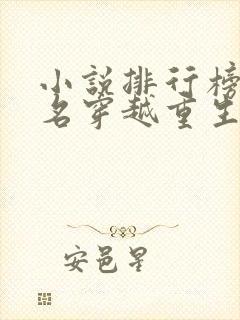 小說排行榜
名穿越重生
安邑星